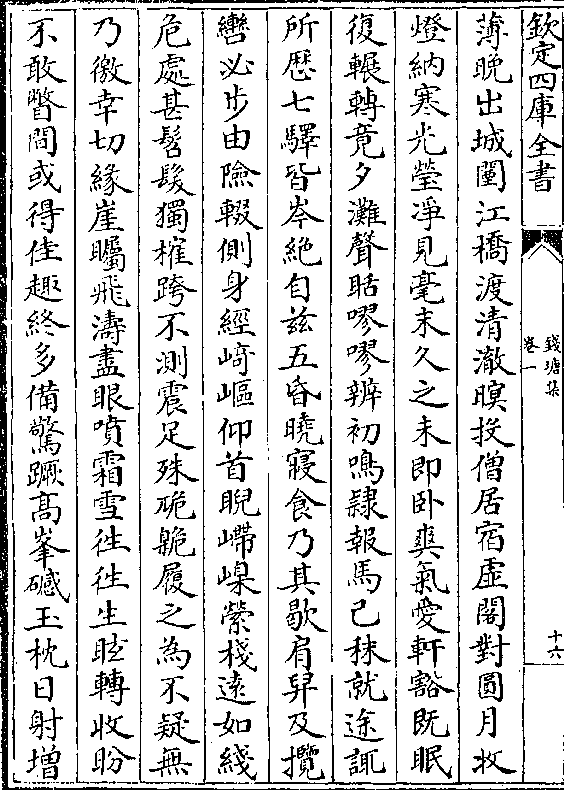 欽定四庫全書
錢塘集
卷一
十六
薄晚出城闉江橋渡清澈暝投僧居宿虛閣對圓月收
燈納寒光瑩淨見毫末久之未即卧爽氣愛軒豁既眠
復輾轉竟夕灘聲聒嘐嘐辨初鳴隸報馬已秣就途諏
所歴七驛皆岑絶自兹五昏曉寢食乃其歇肩舁及攬
轡必步由險輟側身經﨑嶇仰首睨嵽嵲縈棧逺如綫
危處甚髫髪獨榷跨不測震足殊臲卼履之為不疑無
乃徼幸切緣崖矚飛濤盡眼噴霜雪徃徃生眩轉收盼
不敢瞥間或得佳趣終多備驚蹶髙峯磩玉枕日射增